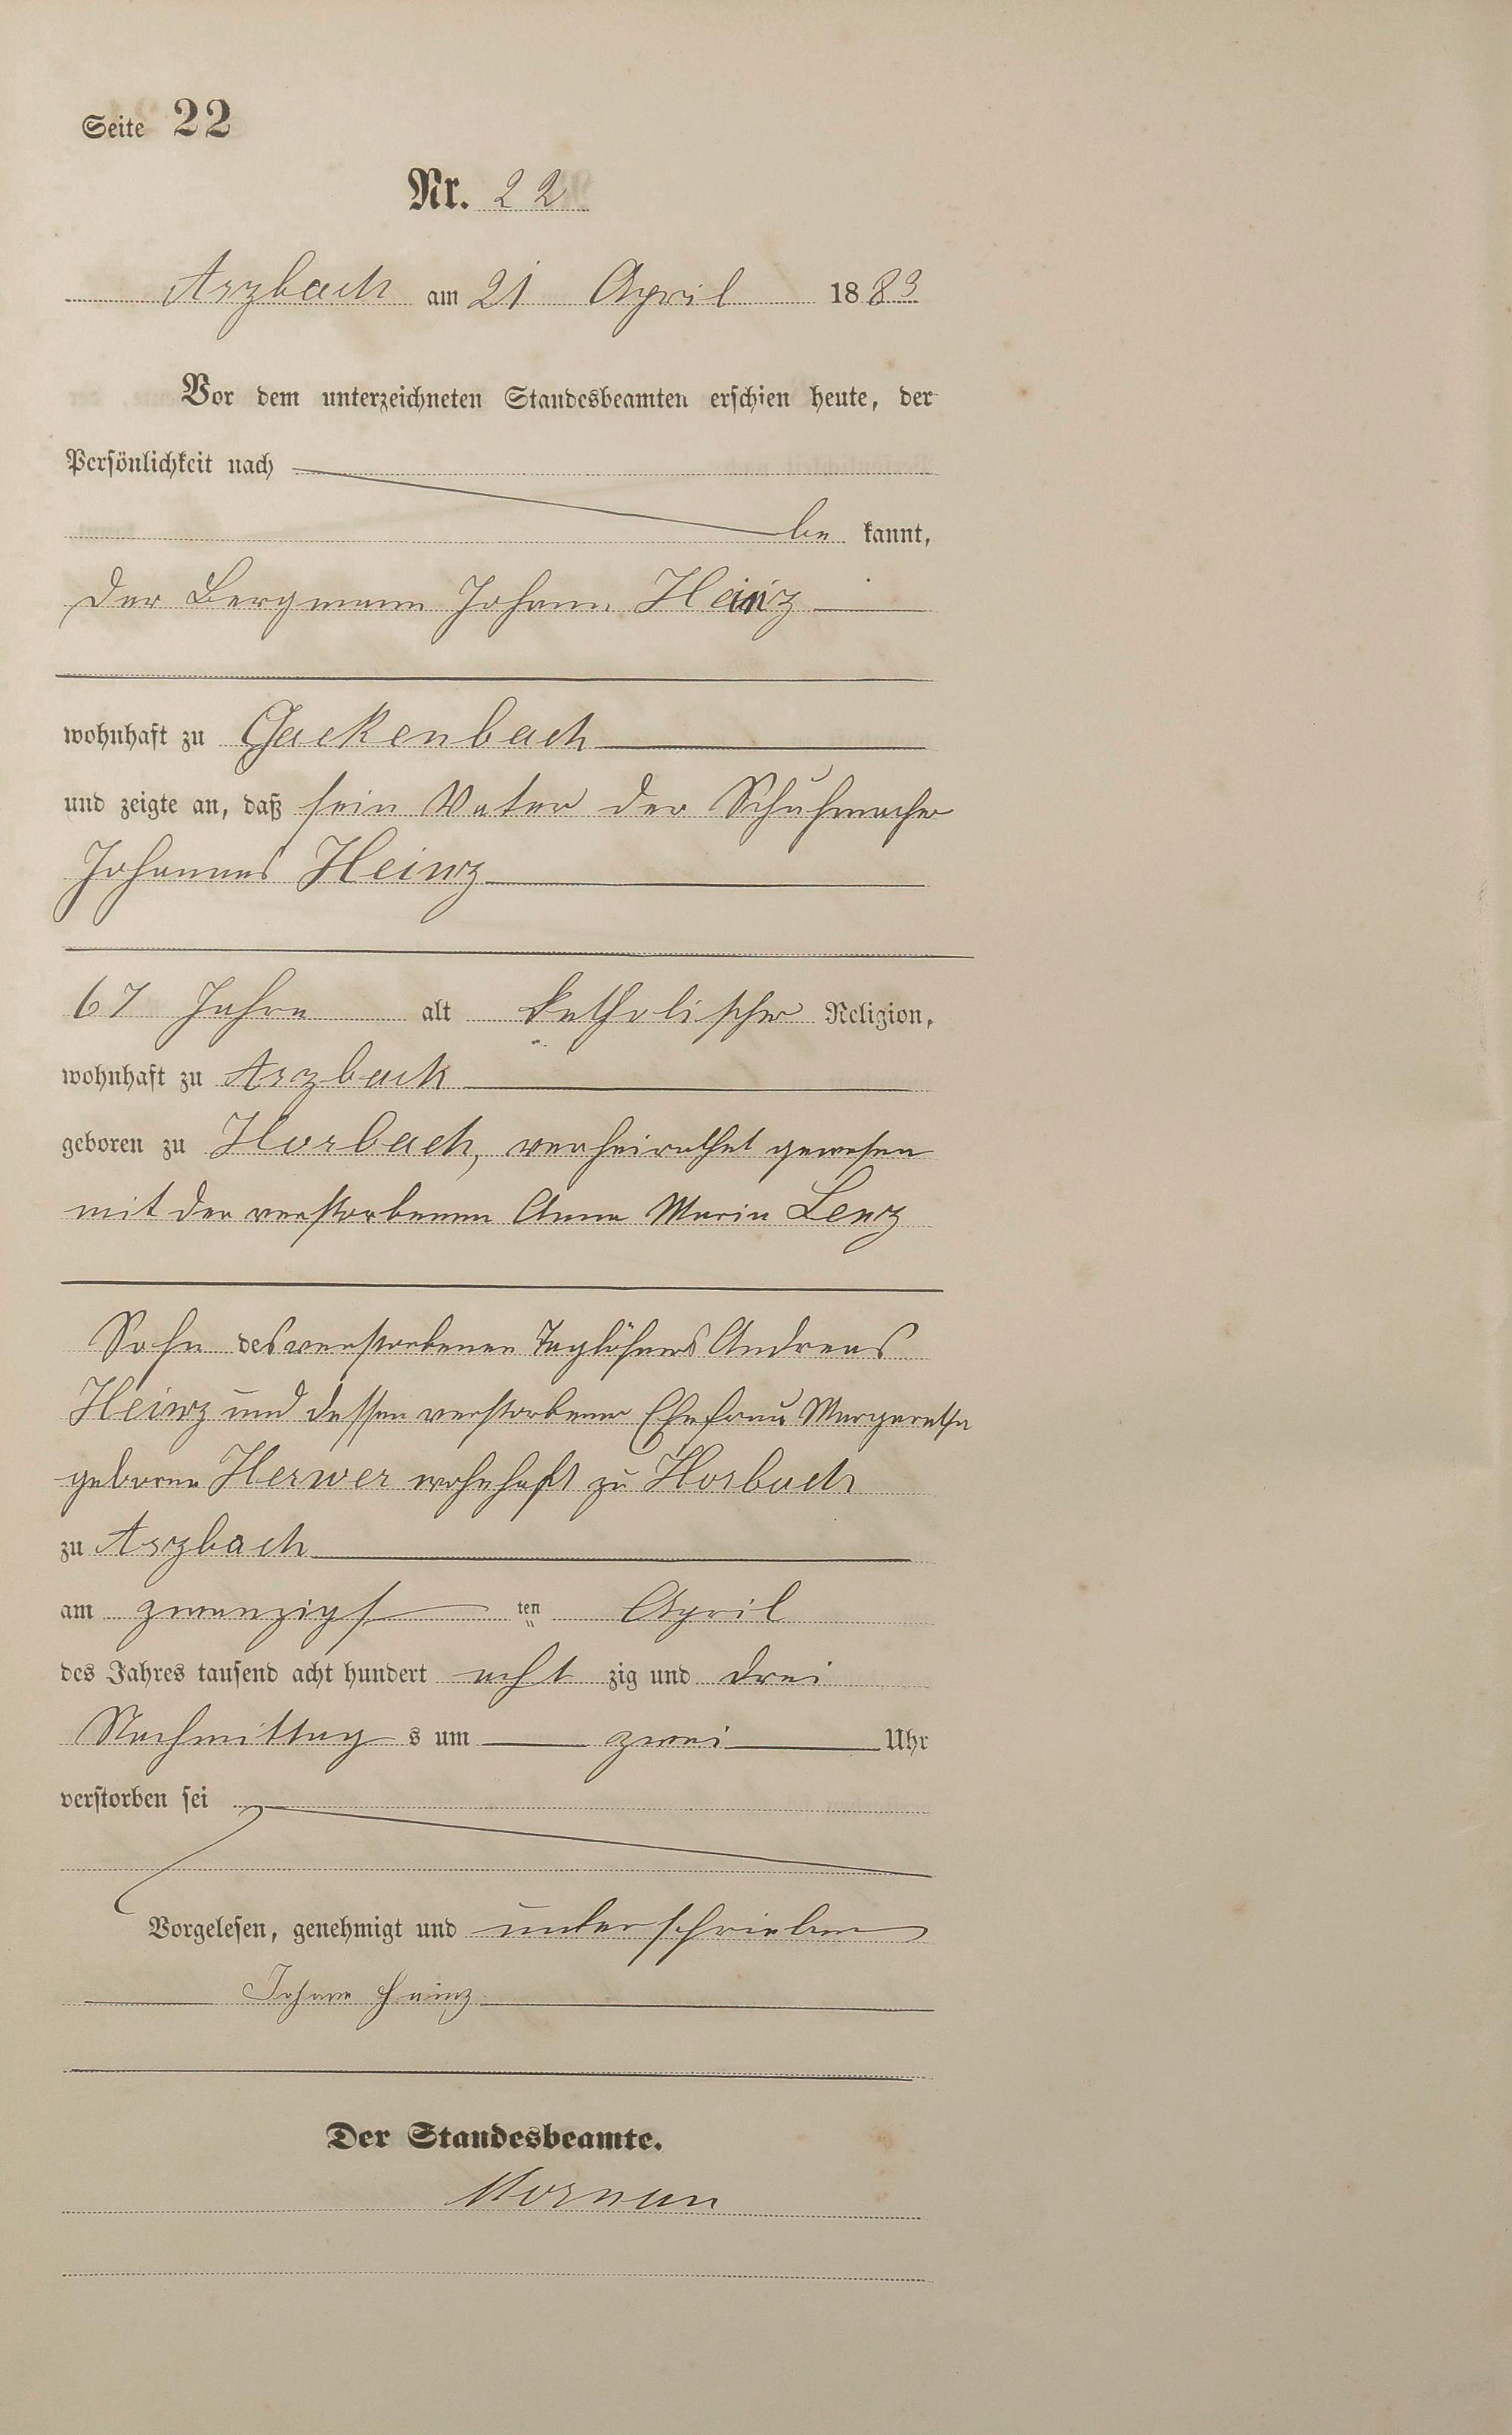 Seite 22
Nr. 22
Arzbach am 21 April 1883
Vor dem unterzeichneten Standesbeamten erschien heute, der
Persönlichkeit nach
be kannt,
der Bergmann Johann Heinz
wohnhaft zu Gackenbach
und zeigte an, daß sein Vater der Schuhmacher
Johannes Heinz
67 Jahre alt katholischer Religion,
wohnhaft zu Arzbach
geboren zu Horbach, verheirathet gewesen
mit der verstorbenen Anna Maria Lenz
Sohn des verstorbenen Taglöhners Andreas
Heinz und dessen verstorbener Ehefrau Margaretha
geborene Herwer wohnhaft zu Horbach
zu Arzbach
am zwanzigs ten April
des Jahres tausend acht hundert acht zig und drei
Nachmittag s um zwei Uhr
verstorben sei
Vorgelesen, genehmigt und unterschrieben
Johann Heinz
Der Standesbeamte.